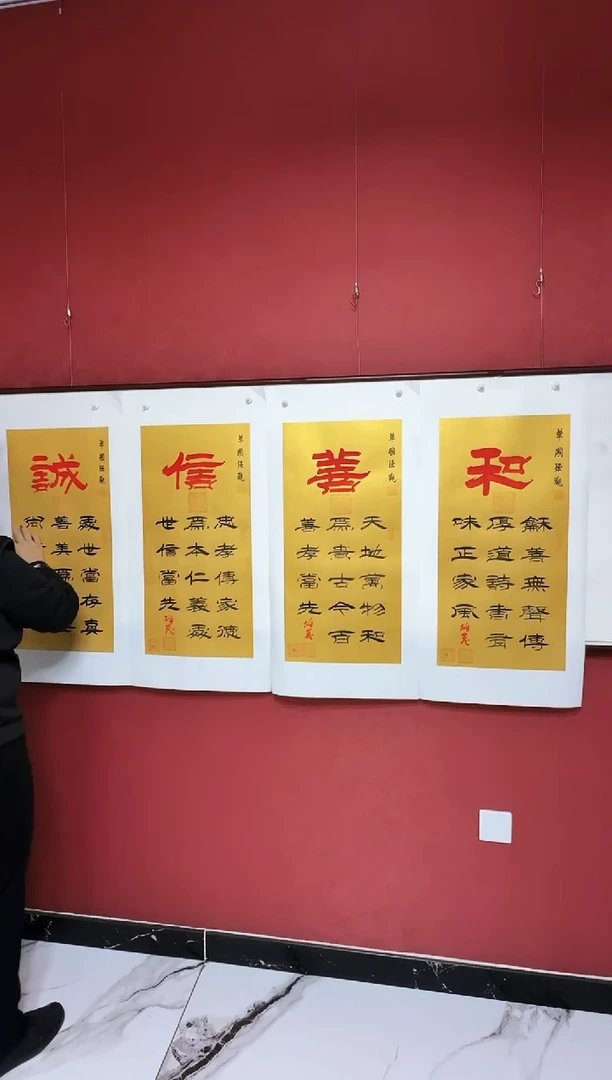 和
龢善無聲傳
厚道詩書有
味正家風
善
天地萬物和
為貴古今百
善孝當先
信
忠孝傳家德
為本仁義處
世信當先
誠
處世當存真
善美為
尚